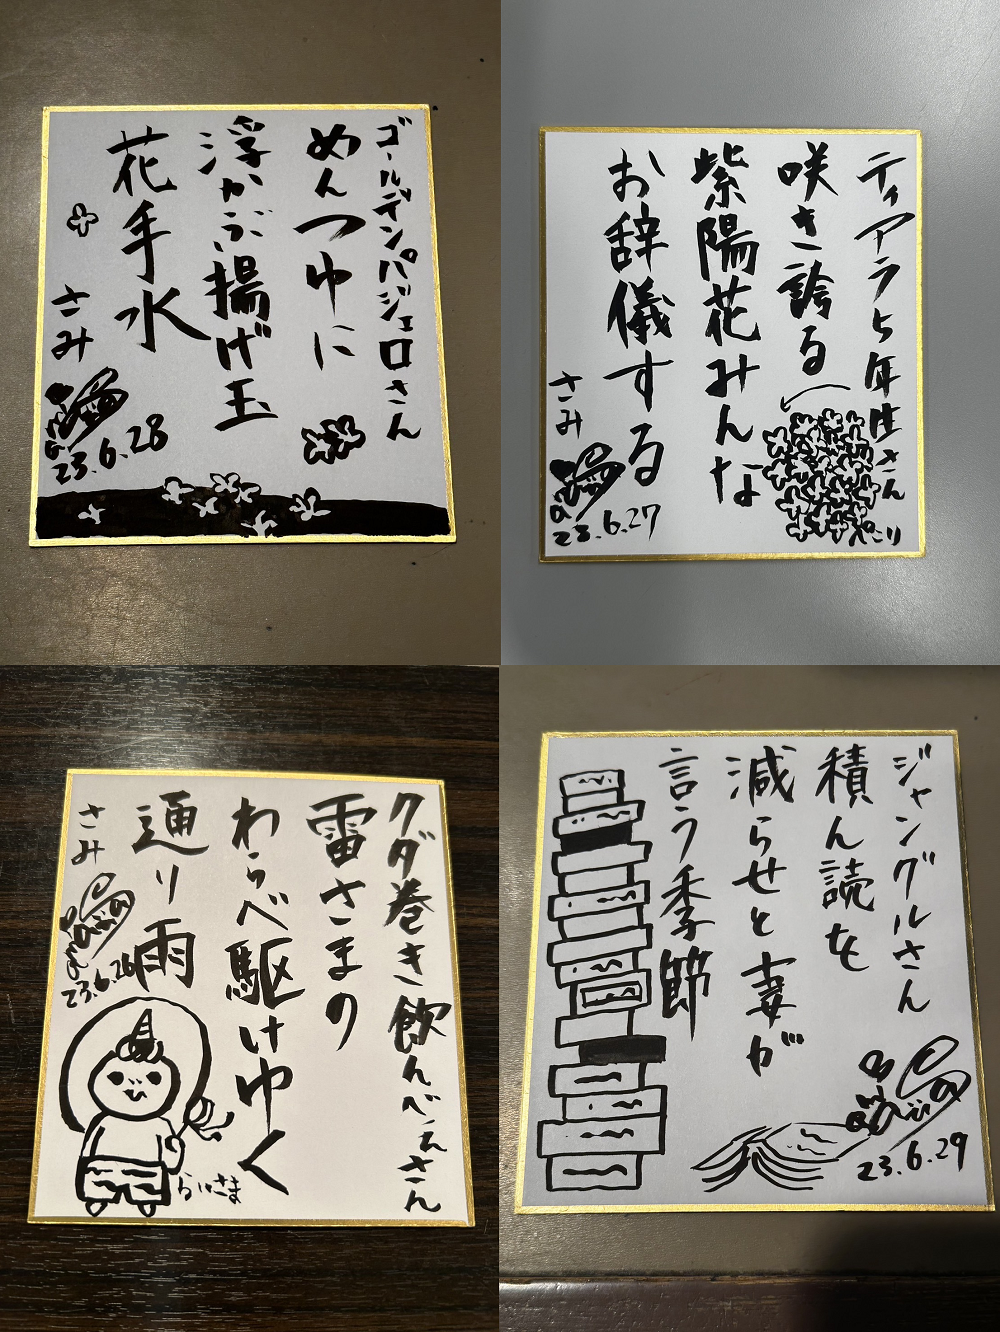 ゴールデンパジェロさん
めんつゆに
浮かぶ揚げ玉
花手水
さみ
23.6.28
ティアラ5年生さん
咲き誇る
紫陽花みんな
お辞儀する
さみ
23.6.27
ぺこり
クダ巻き飲んべぇさん
雷さまの
わらべ駆けゆく
通り雨
さみ
23.6.26
らいさま
ジャングルさん
積ん読を
減らせと妻が
言う季節
23.6.29